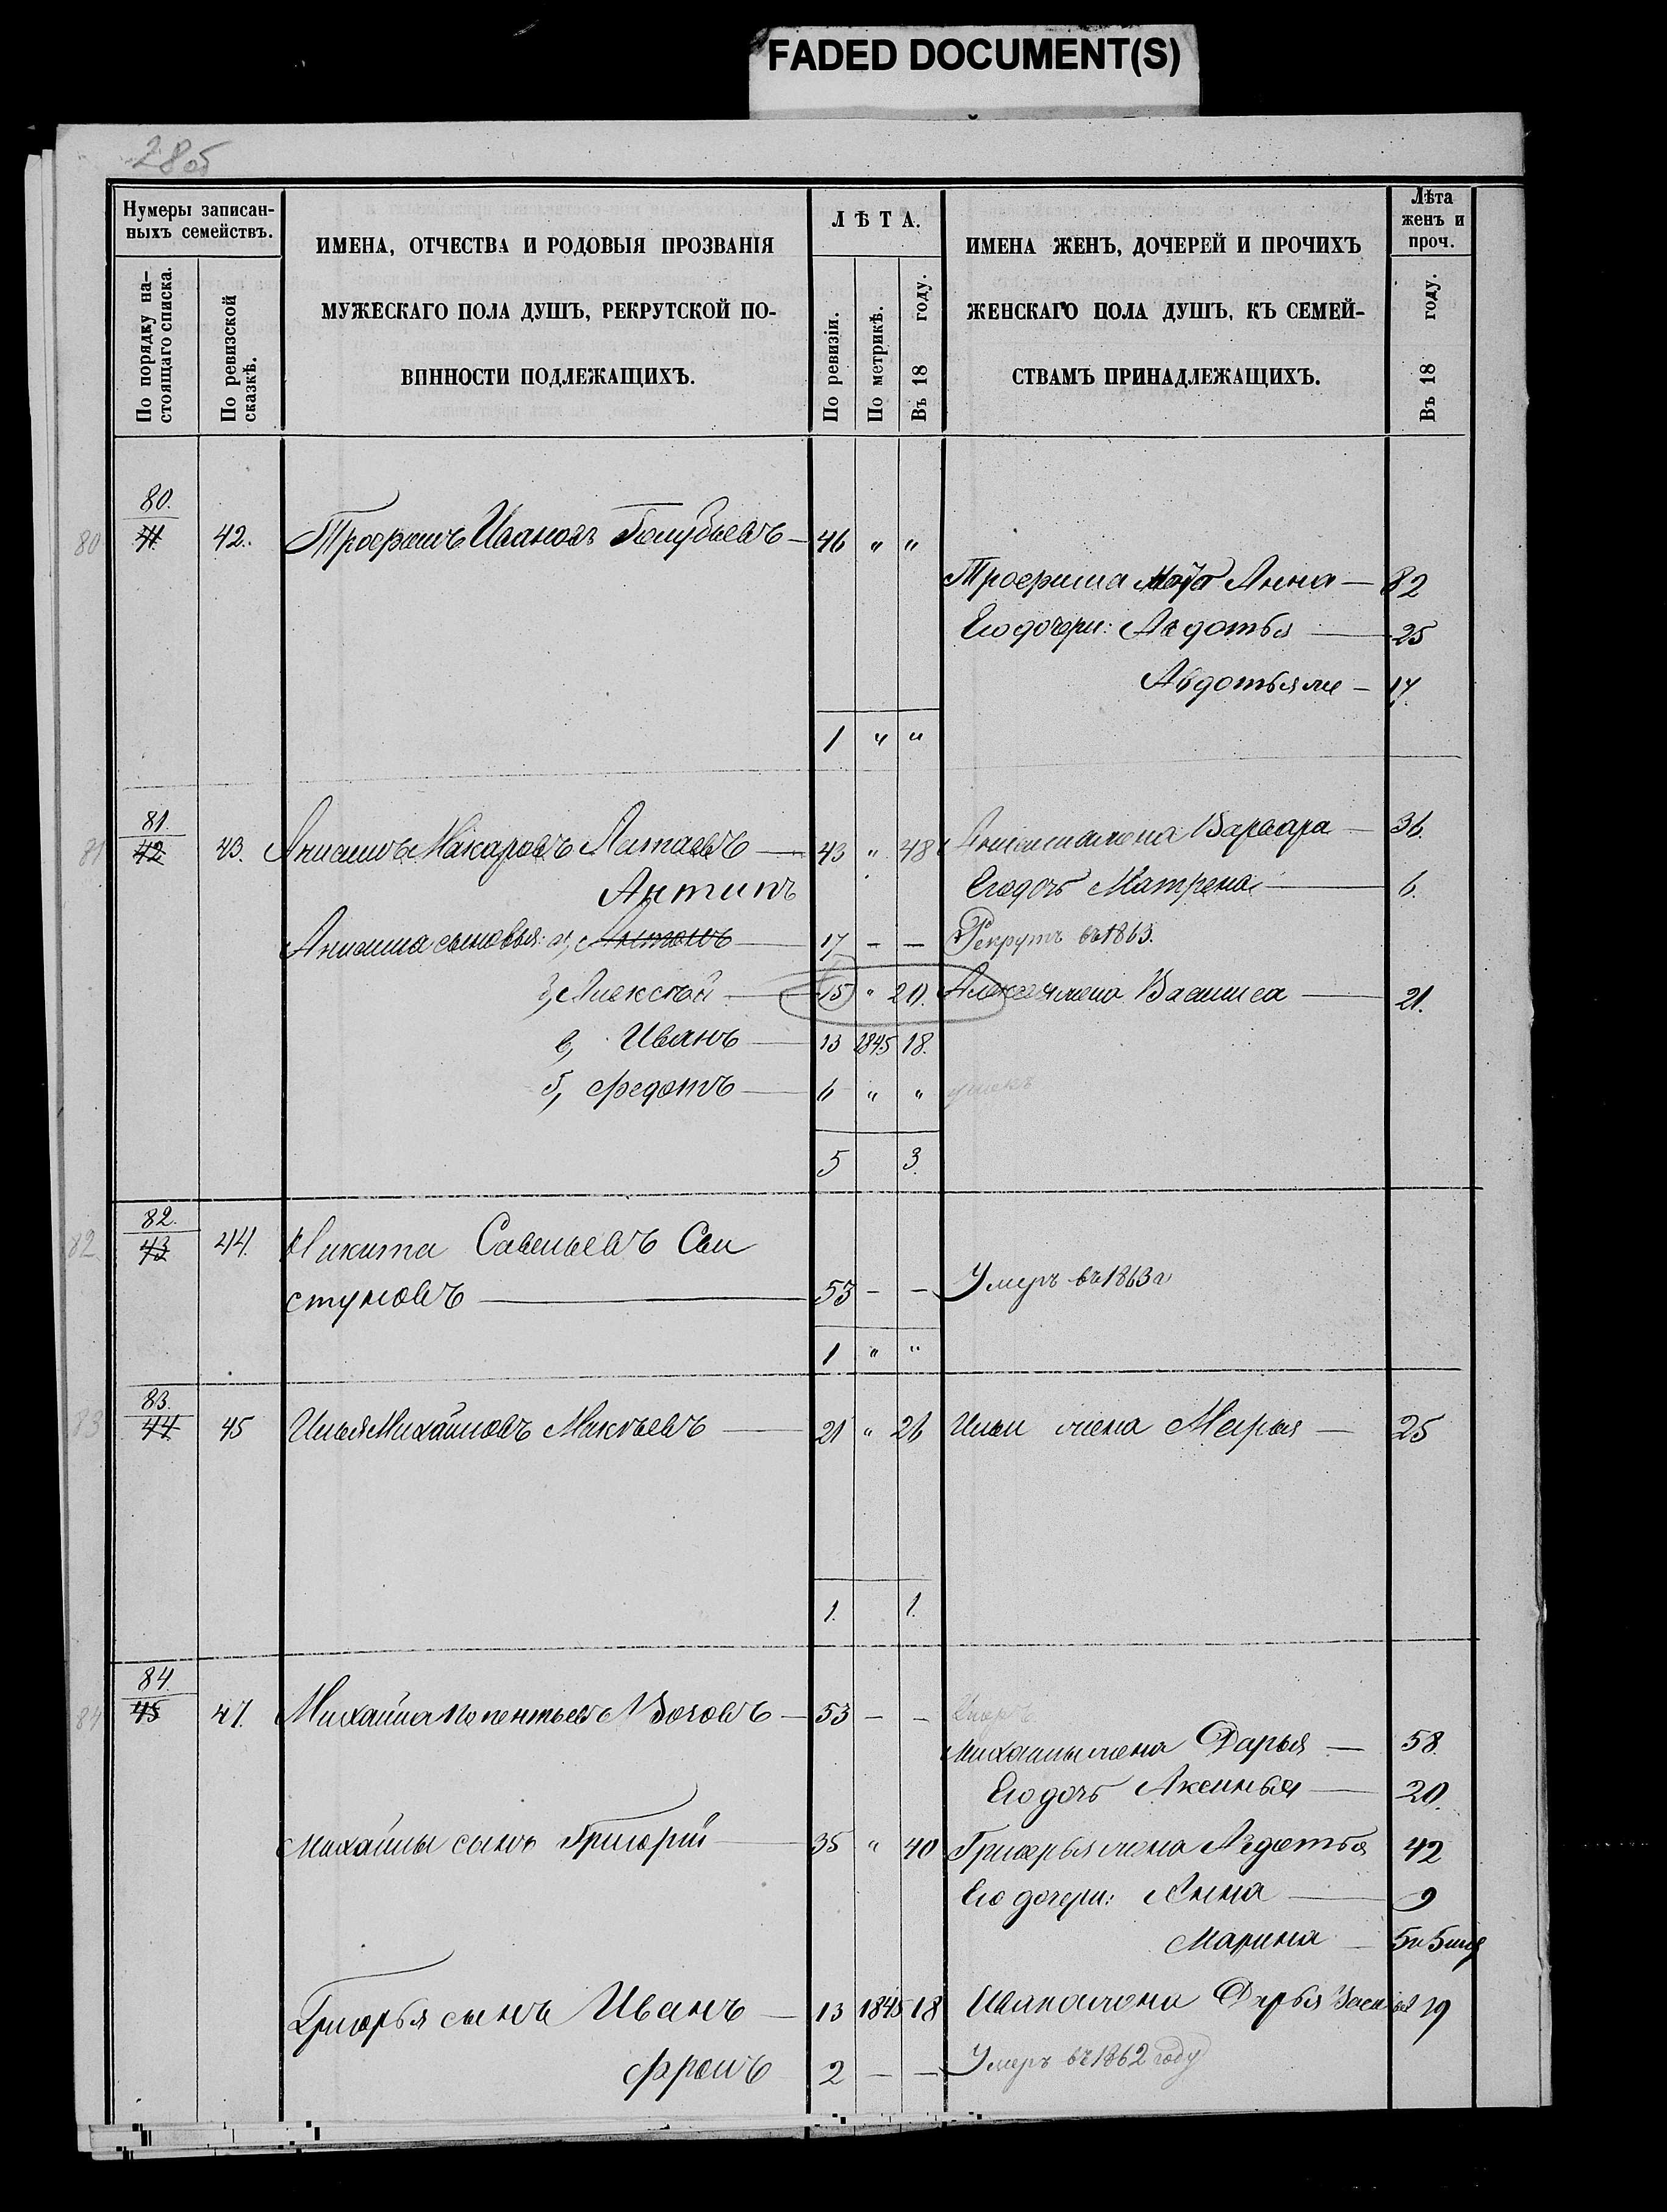 FADED DOCUMENT(S)
28об
Нумеры записан-
ныхъ семействъ.
По порядку на-
стоящаго списка.
По ревизской
сказкѣ.
ИМЕНА, ОТЧЕСТВА И РОДОВЫЯ ПРОЗВАНІЯ
МУЖЕСКАГО ПОЛА ДУШЪ, РЕКРУТСКОЙ ПО-
ВИННОСТИ ПОДЛЕЖАЩИХЪ.
ЛѢТА.
По ревизіи.
По метрикѣ.
Въ 18 году.
ИМЕНА ЖЕНЪ, ДОЧЕРЕЙ И ПРОЧИХЪ
ЖЕНСКАГО ПОЛА ДУШЪ, КЪ СЕМЕЙ-
СТВАМЪ ПРИНАДЛЕЖАЩИХЪ.
Лѣта
женъ и
проч.
Въ 18 году.
80 80. 41 42. Трофимъ Ивановъ Голубьевъ — 46 " "
Трофима Анна — 82
Его дочери: Авдотья — 25
Авдотья же — 17.
1 " "
81 81. 42 43. Анисимъ Макаровъ — 43 " 48 Анисима жена Варвара — 36.
Антипъ Его дочь Матрена — 6.
Анисима сыновья: а, Антонъ — 17 - - Рекрутъ въ 1863.
Алексѣй — 15 " 20. Алексея жена Василиса — 21.
в, Иванъ — 13 1845 18.
Федотъ — 6 " "
5 3.
82 82. 43 44. Никита Савельевъ Сви
стуновъ — 53 - - Умеръ въ 1863 г
1 " "
83 83. 44 45 Илья Михайловъ — 21 " 26 Ильи жена Марья — 25
1. 1.
84 84. 45 47. Михайла — 53 - - Умеръ
Михайлы жена Дарья — 58.
Его дочь Аксинья — 20.
Михайлы сынъ Григорій — 35 " 40 Григорья жена Авдотья 42
Его дочери: Анна — 9
Марина — 5
Григорья сынъ Иванъ — 13 1845 18 Ивана жена Дарья 19
Фролъ 2 - - Умеръ въ 1862 году